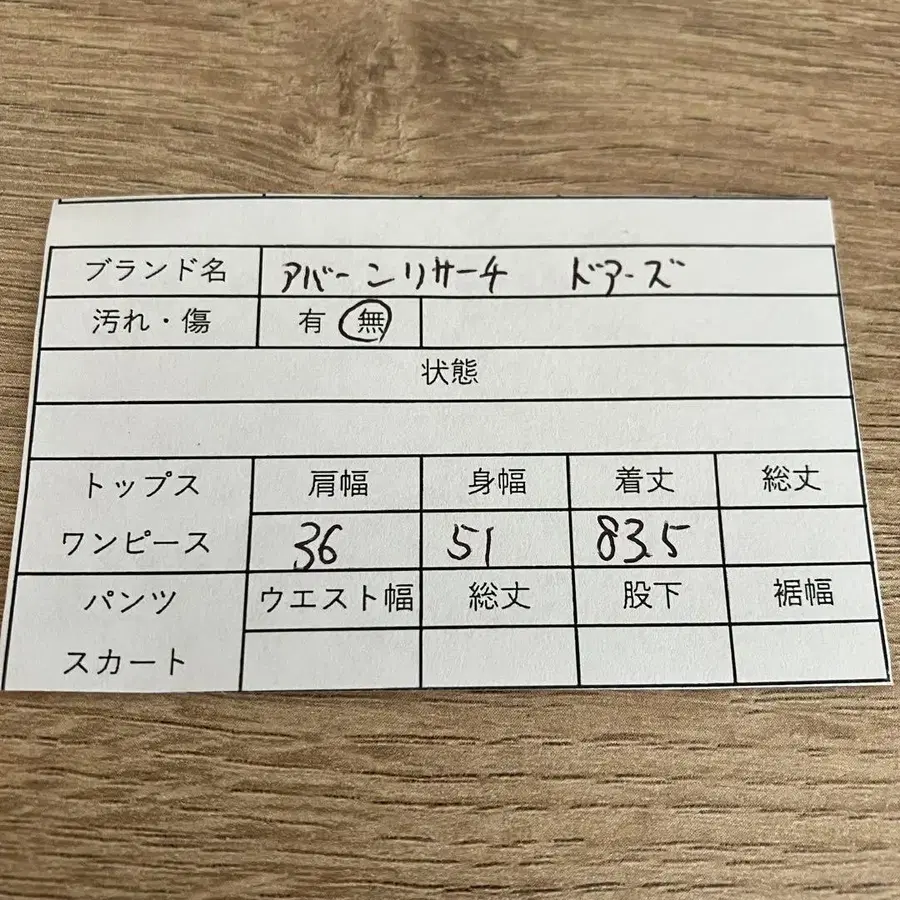 ブランド名 アバーンリサーチ ドアーズ
汚れ・傷 有 無
状態
トップス 肩幅 身幅 着丈 総丈
ワンピース 36 51 83.5
パンツ ウエスト幅 総丈 股下 裾幅
スカート